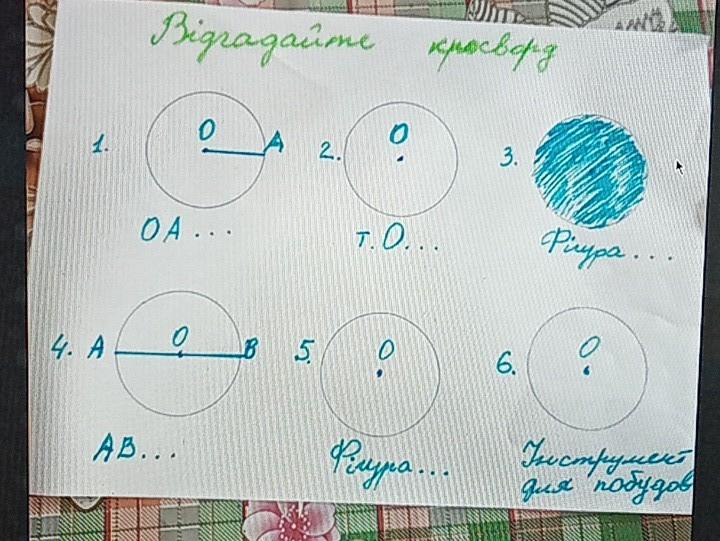 Відгадайте кросворд
1. O A 2. O 3.
OA... т.O... Фігура...
4. A O B 5. O 6. O
AB... Фігура... Інструмент
для побудов